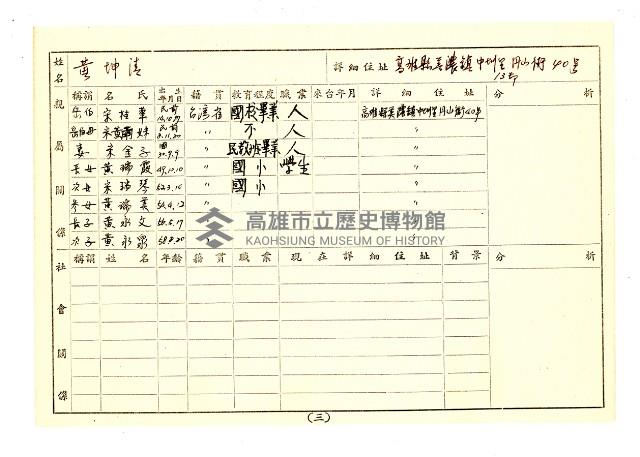 姓名 黃坤清 詳細住址 高雄縣美濃鎮中圳里月山街40号
13鄰
親屬關係
稱謂 名氏 出生年月日 籍貫 教育程度 職業 來台年月 詳細住址 分析
岳伯 宋桂華 民前 台灣省 國校畢業 人 高雄縣美濃鎮中圳里月山街40号
岳伯母 民前 〃 不 人 〃
妻 宋金子 〃 民教班畢業 人 〃
長女 黃瑞霞 49.10.10 〃 國小 學生
次女 宋瑞琴 52.3.10 〃 國小
參女 黃瑞美 54.4.12 〃
長子 黃永文 56.5.17
次子 黃永泉 58.8.20
高雄市立歷史博物館
KAOHSIUNG MUSEUM OF HISTORY
社會關係
稱謂 姓名 年齡 籍貫 職業 現在詳細住址 背景 分析
(三)